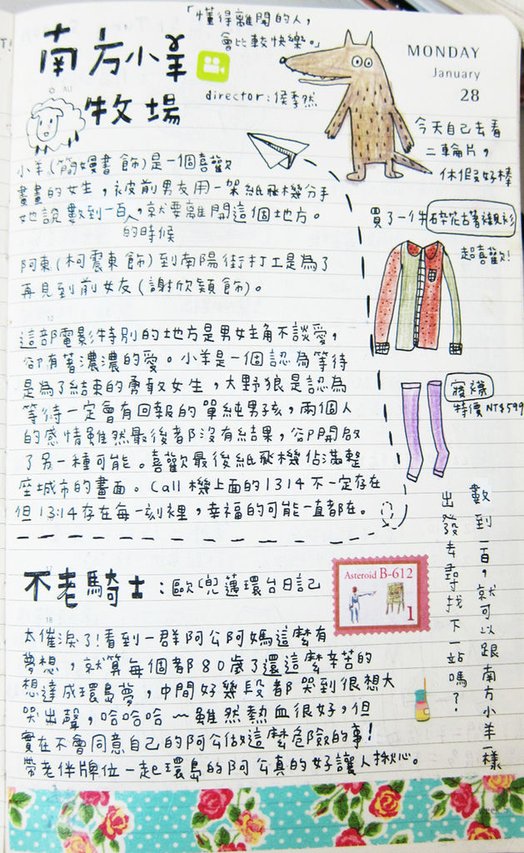 「懂得離開的人，
會比較快樂。」
南方小羊
牧場
director：侯季然
MONDAY
January
28
今天自己去看
二輪片，
休假好棒
小羊(簡嫚書 飾)是一個喜歡
畫畫的女生，被前男友用一架紙飛機分手
她說數到一百人，就要離開這個地方。
的時候
阿東(柯震東 飾)到南陽街打工是為了
再見到前女友(謝欣穎 飾)。
買了一件碎花古著襯衫
超喜歡！
這部電影特別的地方是男女主角不談愛，
卻有著濃濃的愛。小羊是一個認為等待
是為了結束的勇敢女生，大野狼是認為
等待一定會有回報的單純男孩，兩個人
的感情雖然最後都沒有結果，卻開啟
了另一種可能。喜歡最後紙飛機佔滿整
座城市的畫面。Call機上面的1314不一定存在
但13:14存在每一刻裡，幸福的可能一直都在。
襪
特價NT$599
數到一百，就可以跟南方小羊一樣
出發去尋找下一站嗎？
不老騎士：歐兜邁環台日記
Asteroid B-612
1
太催淚了！看到一群阿公阿媽這麼有
夢想，就算每個都80歲了還這麼辛苦的
想達成環島夢，中間好幾段都哭到很想大
哭出聲，哈哈哈～雖然熱血很好，但
實在不會同意自己的阿公做這麼危險的事！
帶老伴牌位一起環島的阿公真的好讓人揪心。